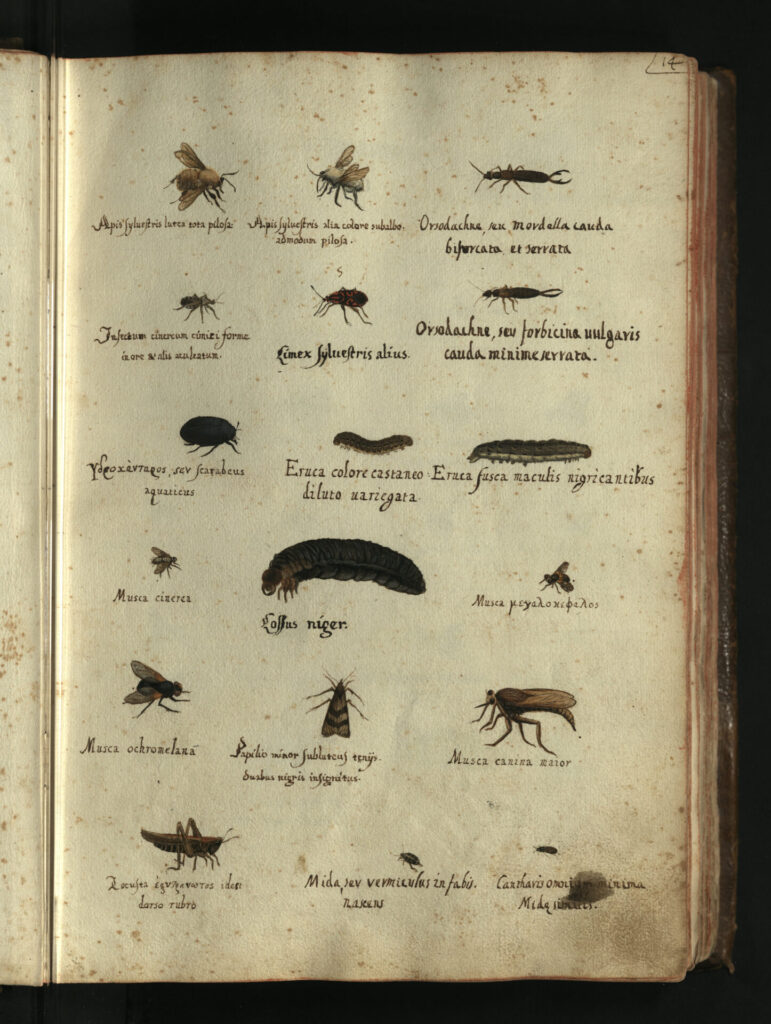 14
Apis sylvestris lutea tota pilosa
Apis sylvestris alia colore subalbo.
admodum pilosa.
Orsodachne, seu mordella cauda
bifurcata et serrata
Insectum cinereum cimici forme
ore & alis aculeatum.
5
Cimex sylvestris alius.
Orsodachne, seu forbicina vulgaris
cauda minime serrata.
Υδροκάνταρος, seu scarabeus
aquaticus
Eruca colore castaneo
diluto variegata
Eruca fusca maculis nigricantibus
Musca cinerea
Cossus niger.
Musca μεγαλοκεφαλος
Musca ochromelana
Papilio minor subluteus tenijs.
duabus nigris insignitus.
Musca canina maior
Locusta idest
dorso rubro
Mida, seu vermiculus in fabis.
nascens
Cantharis omnium minima
Midę similis.